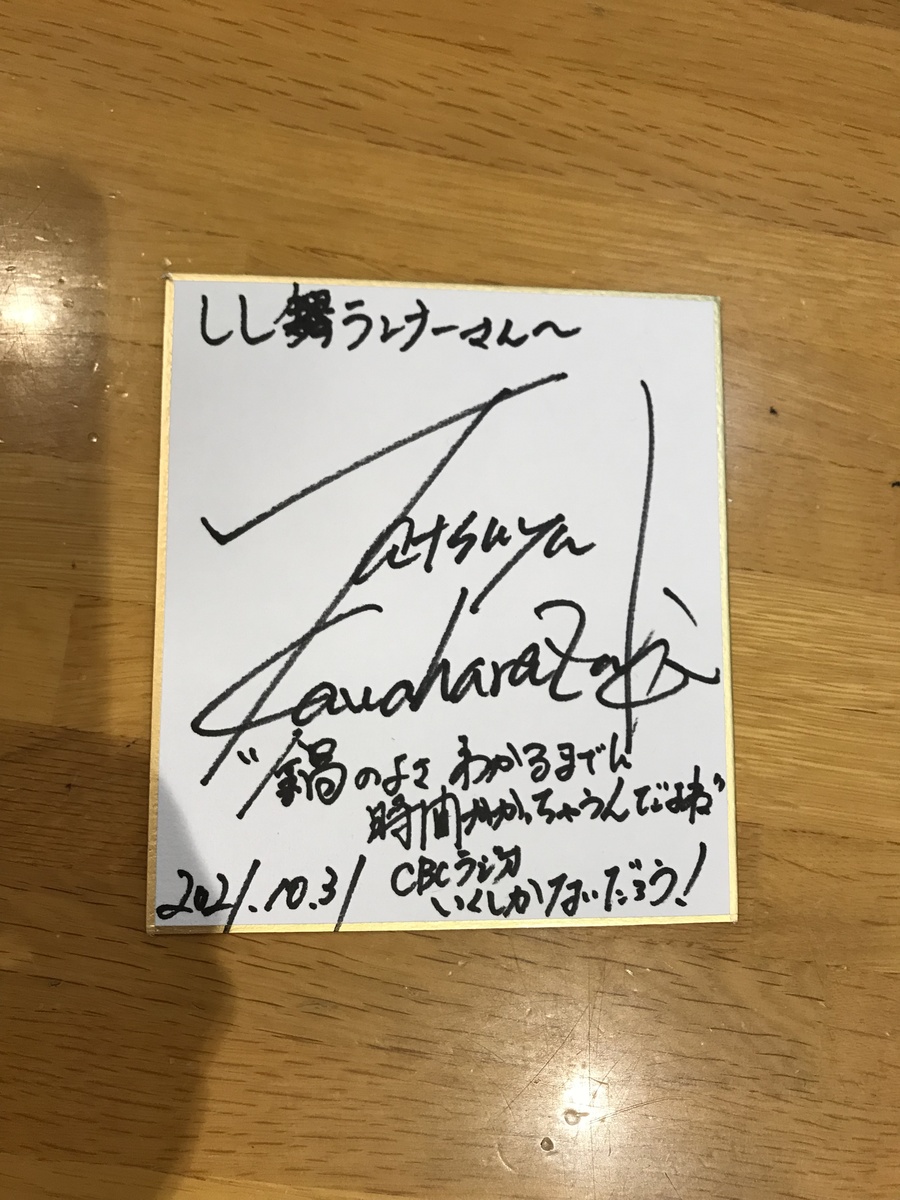 しし鍋ランナーさんへ
Tatsuya
Kawaharazaki
"鍋のよさ わかるまでに
時間がかかっちゃうんだよね"
CBCラジオ
いくしかないだろう!
2021.10.31